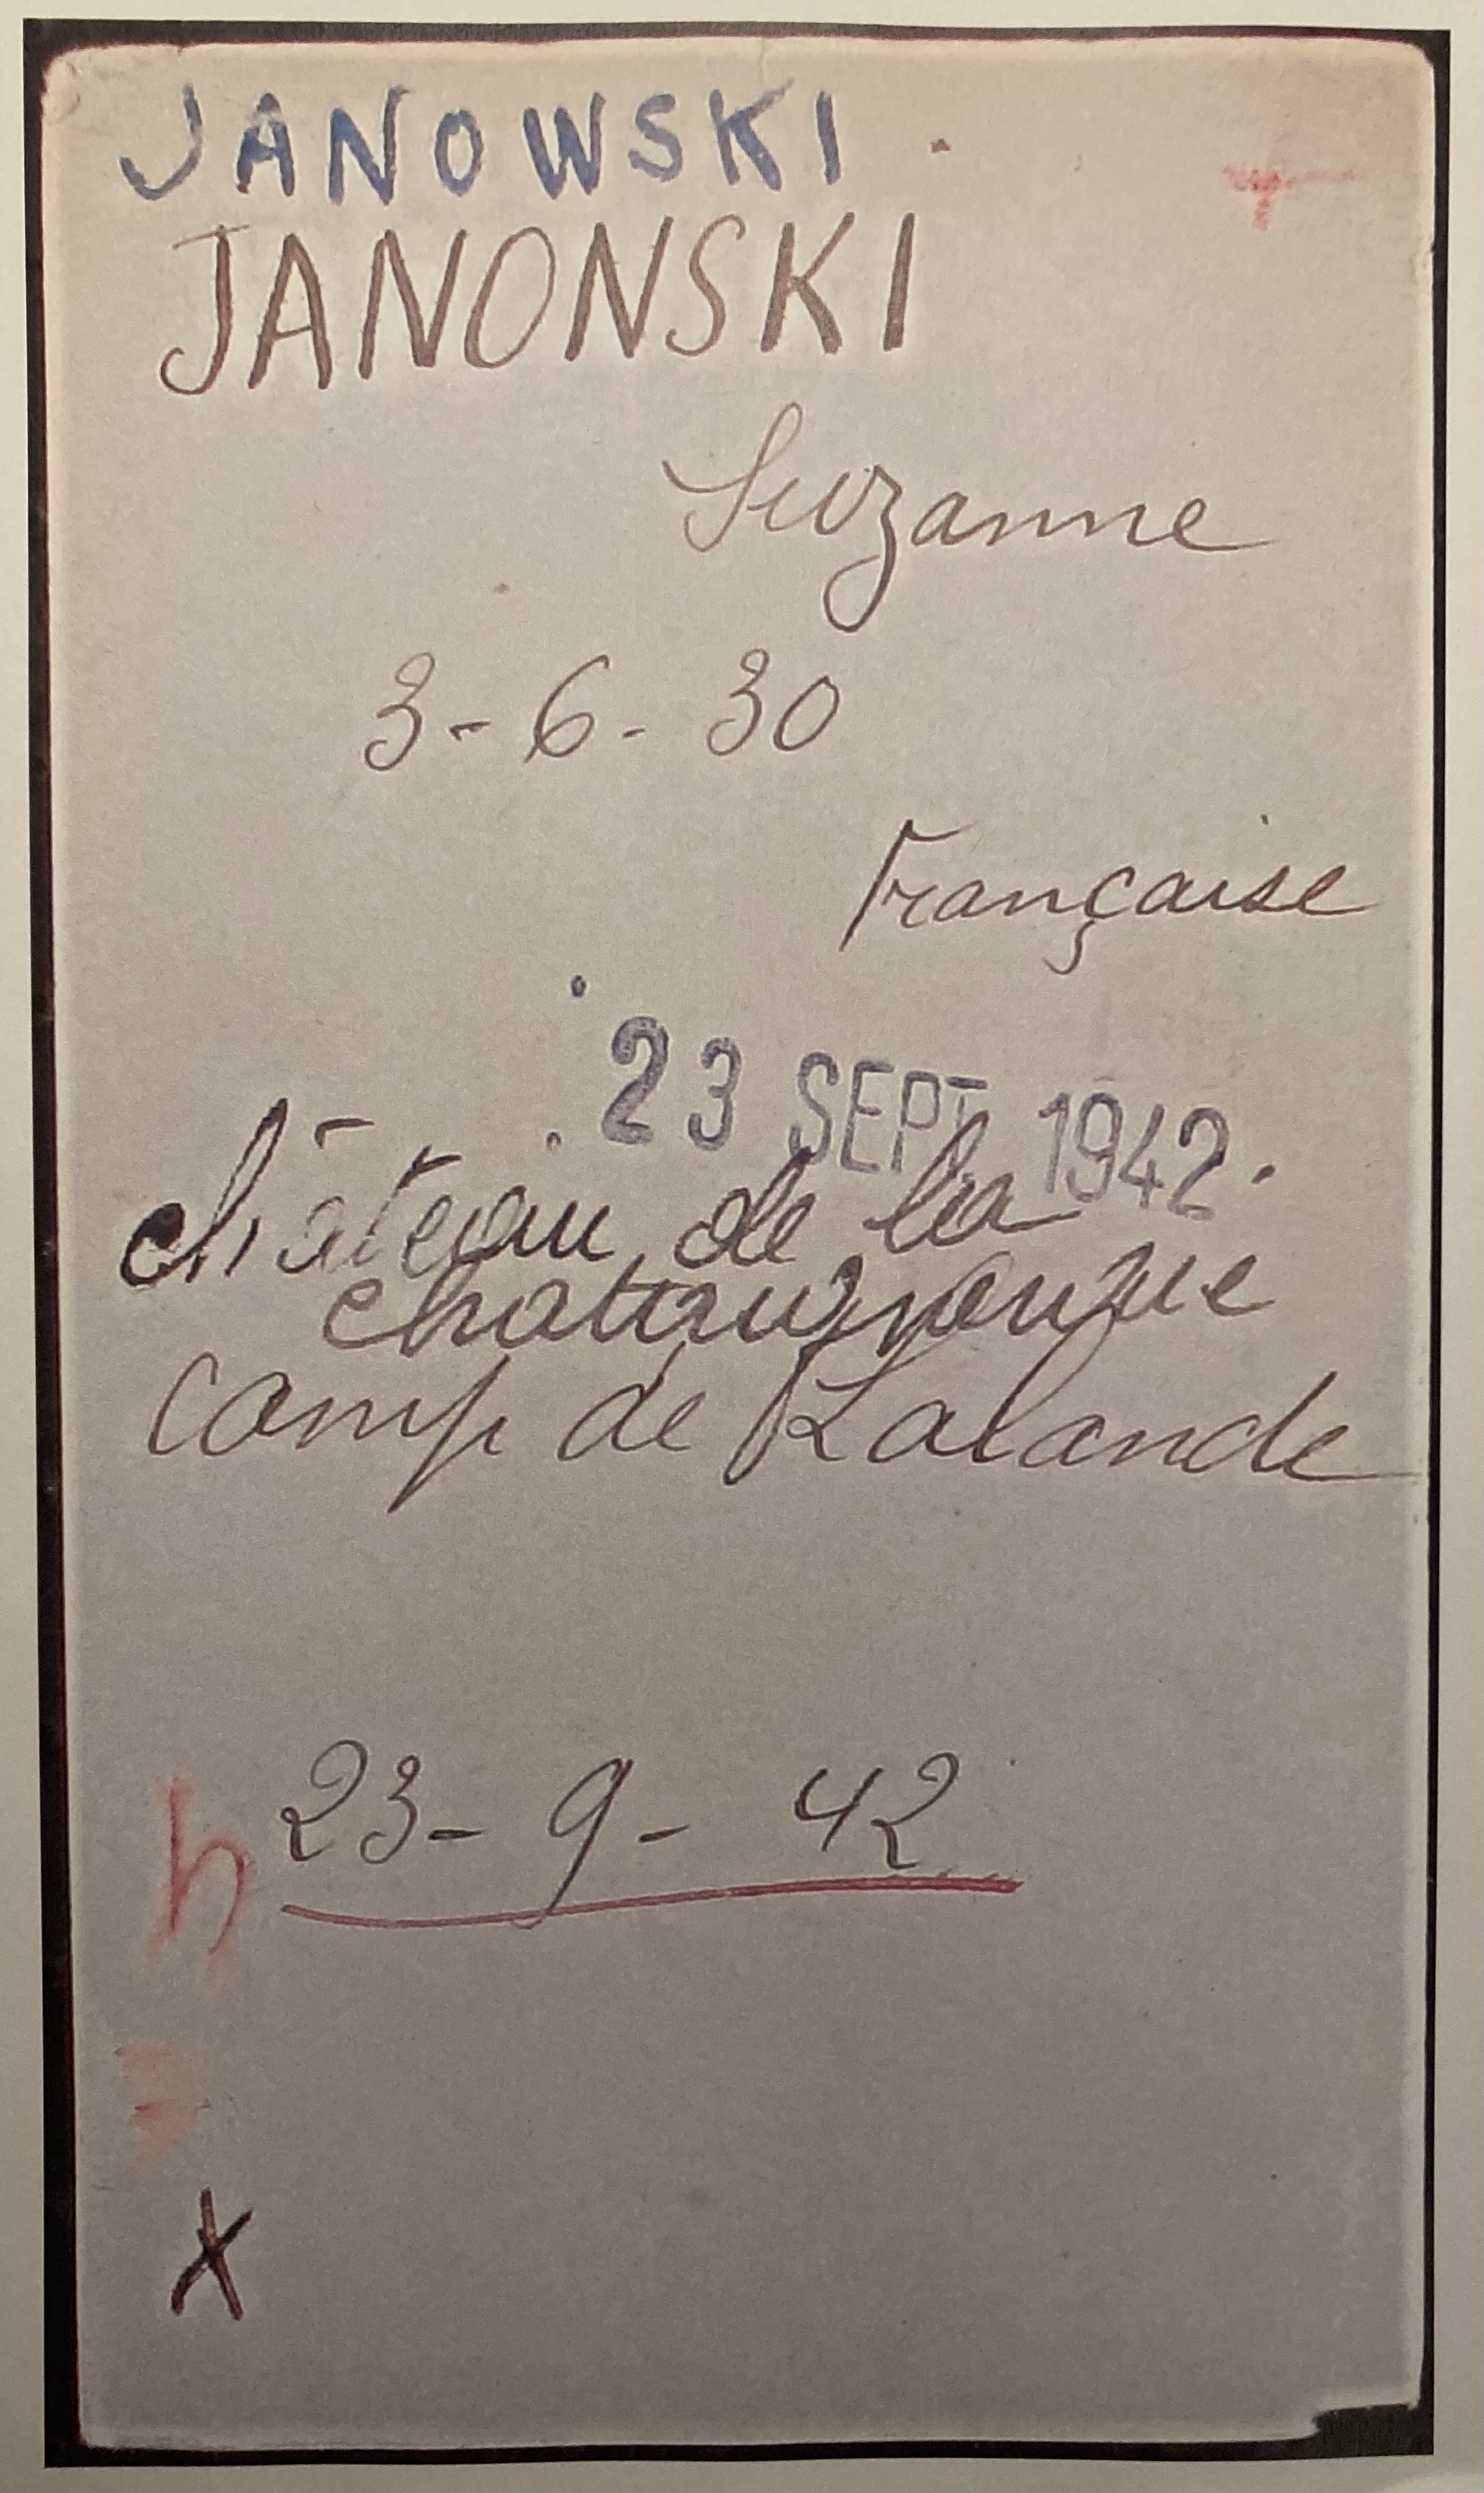 JANOWSKI.
JANONSKI
Suzanne
3-6-30
Française
23 SEPT. 1942.
château de la
camp de Lalande
23-9-42